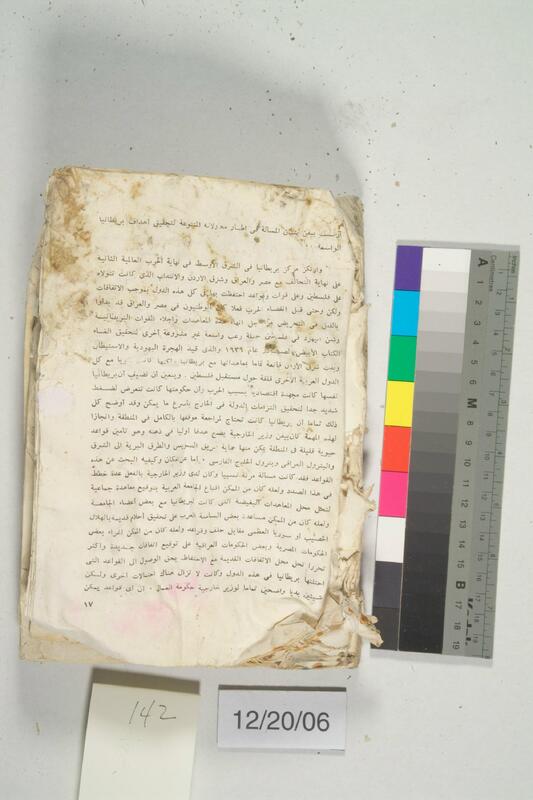 المسألة في إطار محاولاته المتنوعة لتحقيق أهداف بريطانيا
الواسعة
وارتكز مركز بريطانيا في الشرق الأوسط في نهاية الحرب العالمية الثانية
على نهاية التحالف مع مصر والعراق وشرق الاردن والانتداب الذى كانت تتولاه
على فلسطين وعلى قوات وقواعد احتفظت بها في كل هذه الدول بموجب الاتفاقات
ولكن وحتى قبل انقضاء الحرب فعلا الوطنيون في مصر والعراق قد بدأوا
المعاهدات واجلاء القوات البريطانية
وشن اليهود في فلسطين حملة رعب واسعة غير مشروعة أخرى لتحقيق الغاء
الكتاب الأبيض عام ١٩٣٩ والذى قيد الهجرة اليهودية والاستيطان
الاردن قانعة تماما بمعاهداتها مع بريطانيا مع كل
الدول العربية الأخرى قلقة حول مستقبل فلسطين . ويتعين أن نضيف أن بريطانيا
نفسها كانت مجهدة اقتصاديا بسبب الحرب وأن حكومتها كانت تتعرض لضغط
شديد جدا لتحقيق التزامات الدولة في الخارج بأسرع ما يمكن وقد أوضح كل
ذلك تماما أن بريطانيا كانت تحتاج لمراجعة موقفها بالكامل في المنطقة وانجازا
لهذه المهمة كان بيفن وزير الخارجية يضع هدفا أوليا في ذهنه وهو تأمين قواعد
حيوية قليلة في المنطقة يمكن منها حماية طريق السويس والطرق البرية الى الشرق
والبترول العراقي وبترول الخليج الفارسى ، أما عن مكان وكيفية البحث عن هذه
القواعد فقد كانت مسألة مرنة نسبيا وكان لدى وزير الخارجية بالفعل عدة خطط
في هذا الصدد ولعله كان من الممكن اقناع الجامعة العربية بتوقيع معاهدة جماعية
لتحل محل المعاهدات البغيضة التى كانت لبريطانيا مع بعض أعضاء الجامعة
ولعله كان من الممكن مساعدة بعض الساسة العرب على تحقيق أحلام قديمة بالهلال
الخصيب أو سوريا العظمى مقابل حلف وقواعد ولعله كان من الممكن اغراء بعض
الحكومات المصرية وبعض الحكومات العراقية على توقيع اتفاقات جديدة وأكثر
تحررا تحل محل الاتفاقات القديمة مع الاحتفاظ بحق الوصول الى القواعد التى
احتلتها بريطانيا في هذه الدول وكانت لا تزال هناك احتمالات أخرى ولكن
شيئين بديا واضحين تماما لوزير خارجية حكومة العمال . ان أى قواعد يمكن
١٧
142
12/20/06
inches
Centimetres